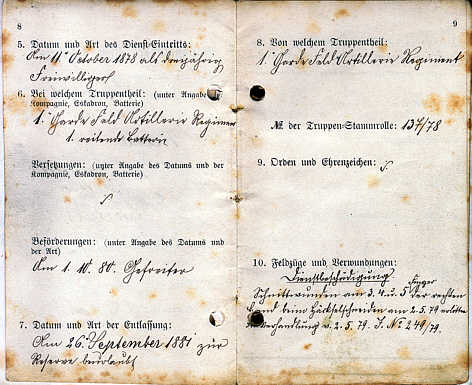 8
5. Datum und Art des Dienst-Eintritts:
Am 11t October 1878 als dreijährig
Freiwilliger
6. Bei welchem Truppentheil: (unter Angabe der
Kompagnie, Eskadron, Batterie)
1. Garde Feld Artillerie Regiment
1. reitende Batterie
Versetzungen: (unter Angabe des Datums und der
Kompagnie, Eskadron, Batterie)
Beförderungen: (unter Angabe des Datums und
der Art)
Am 1. 10. 80. Gefreiter
7. Datum und Art der Entlassung:
Am 26. September 1881 zur
Reserve beurlaubt
9
8. Von welchem Truppentheil:
1. Garde Feld Artillerie Regiment
№ der Truppen-Stammrolle: 137/78
9. Orden und Ehrenzeichen:
10. Feldzüge und Verwundungen:
Dienstbeschädigung
Schnittwunden am 3. 4. u. 5 Finger der rechten
Hand beim Häckselschneiden am 2. 5. 79 erlitten
Verhandlung v. 2. 5. 79. J. № 249/79.